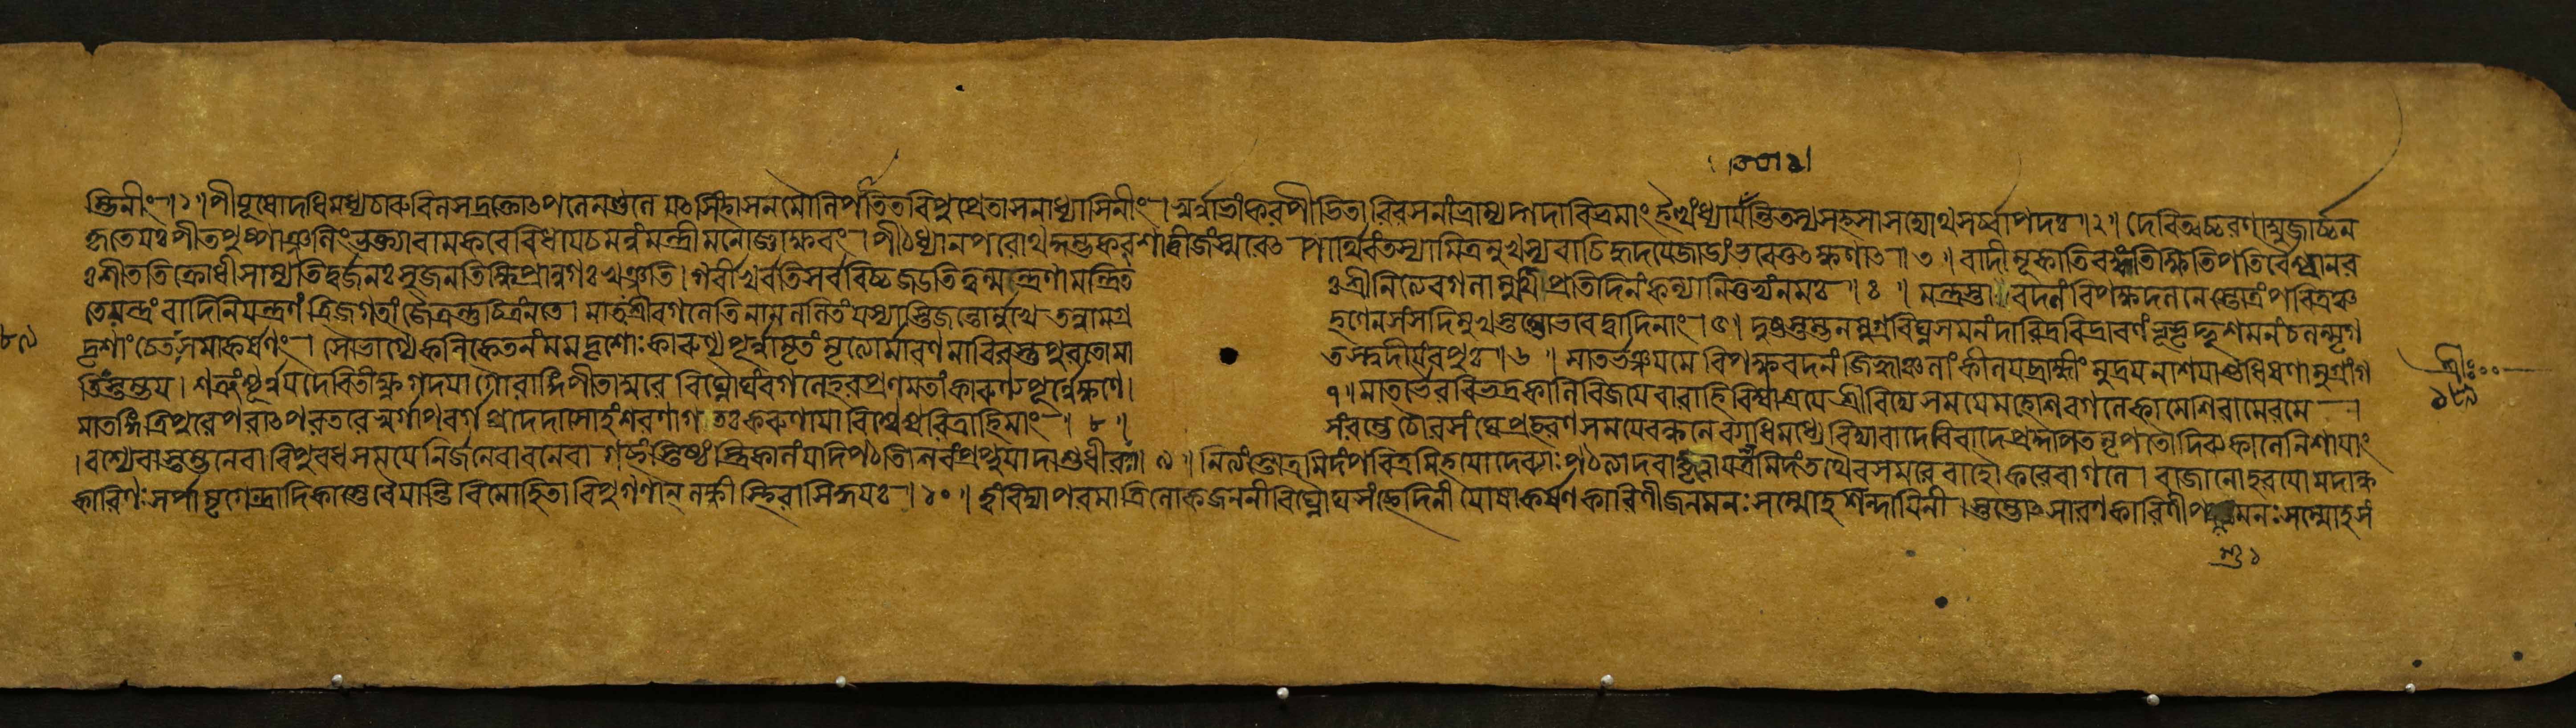 ম্ভিনীং ॥১॥ পীযূষোদধিমধ্যচারুবিলসদ্রক্তোৎপলেমণ্ডলে যৎসিংহাসনমৌলিপতিতরিপুপ্রেতাসনাধ্যাসিনীং । স্বর্ণ্ণাভাংকরপীডিতারিরসনাংভ্রাম্যদ্গদাবিভ্রমাং ইত্থংধ্যায়ন্তিতস্যসহসাসদ্যোথসর্ব্বাপদঃ ॥২॥ দেবিত্বচ্চরণাম্বুজার্চ্চন
কৃতেযঃপীতপুষ্পাঞ্জলিংভক্ত্যাবামকরেবিধায়চমন্ত্রংমন্ত্রীমনোজ্ঞাক্ষরং । পীঠধ্যানপরোথকুম্ভকবশাদ্বীজংস্মরেৎ পার্থিবংতস্যামিত্রমুখস্যবাচিহৃদয়েজাড্যংভবেত্তৎক্ষণাৎ ॥৩॥ বাদীমূকতিরঙ্কতিক্ষিতিপতির্বৈশ্বানর
ঃশীততিক্রোধীসাম্যতিদুর্জনঃসুজনতিক্ষিপ্রানুগঃখঞ্জতি । গর্বীখর্বতিসর্ববিচ্চজডতিত্বন্মন্ত্রিণামন্ত্রিত ঃশ্রীনিত্যেবগলামুখিপ্রতিদিনংকল্যাণিতুভ্যংনমঃ ॥৪॥ মন্ত্রস্তাবদলংবিপক্ষদলনেস্তোত্রংপবিত্রঞ্চ
তেযন্ত্রংবাদিনিযন্ত্রণংত্রিজগতাংজৈত্রন্তুচিত্রংনতে । মাতঃশ্রীবগলেতিনামললিতংযস্যাস্তিজন্তোর্মুখে ত্বন্নামগ্র হণেনসংসদিমুখস্তম্ভোভবেদ্বাদিনাং ॥৫॥ দুষ্টস্তম্ভনমুগ্রবিঘ্নসমনংদারিদ্রবিদ্রাবণংভূভৃদ্ভুশমনংচলন্মৃগ
দৃশাংচেতঃসমাকর্ষণং । সৌভাগ্যৈকনিকেতনংমমদৃশোঃকারুণ্যপূর্ণ্ণামৃতংমৃত্যোর্মারণমাবিরস্তুপুরতোমা তস্ত্বদীয়ংবপুঃ ॥৬॥ মাতর্ভঞ্জয়মে বিপক্ষবদনংজিহ্বাঞ্চলাংকীলয়ব্রাহ্মীংমুদ্রয়নাশয়াশুধিষণামুগ্রাংগ
তিংস্তম্ভয় । শত্রূংশ্চূর্ণ্ণয়দেবিতীক্ষ্ণগদয়াগৌরাঙ্গিপীতাম্বরে বিঘ্নৌঘংবগলেহরপ্রণমতাংকারুণ্যপূর্ণ্ণেক্ষণে । ৭॥ মাতর্ভৈরবিভদ্রকালিবিজয়েবারাহিবিশ্বাশ্রয়েশ্রীবিদ্যেসময়েমহেশিবগলেকামেশিরামেরমে ।
মাতঙ্গিত্রিপুরেপরাৎপরতরেস্বর্গাপবর্গপ্রদেদাসোহংশরণাগতঃকরুণয়াবিশ্বেশ্বরিত্রাহিমাং । ৮॥ সংরম্ভেচৌরসংঘেপ্রহরণসময়েবন্ধনেব্যাধিমধ্যেবিদ্যাবাদেবিবাদেপ্রকুপিতনৃপতৌদিব্যকালেনিশায়াং
। বশ্যেবাস্তম্ভনেবারিপুবধসময়েনির্জনেবাবনেবা গচ্ছংস্তিষ্ঠংস্ত্রিকালংযদিপঠতিশিবংপ্রাপ্নুয়াদাশুধীরঃ॥৯॥ নিত্যংস্তোত্রমিদংপবিত্রমিহযোদেব্যাঃপঠত্যাদরাদ্ধৃত্বাযন্ত্রমিদংতথৈবসমরেবাহৌকরেবাগলে । রাজানোহরয়োমদান্ধ
করিণঃসর্পামৃগেন্দ্রাদিকাস্তেবৈযান্তিবিমোহিতারিপুগণালক্ষ্মীস্থিরাসিদ্ধয়ঃ ॥১০॥ ত্বংবিদ্যাপরমাত্রিলোকজননীবিঘ্নৌঘসংছেদিনী যোষাকর্ষণকারিণীজনমনঃসম্মোহশন্দায়িনী । স্তম্ভোৎসারণকারিণীপশুমনঃসম্মোহসং
৮৯
শ্রীঃ
১৮৯
শু১